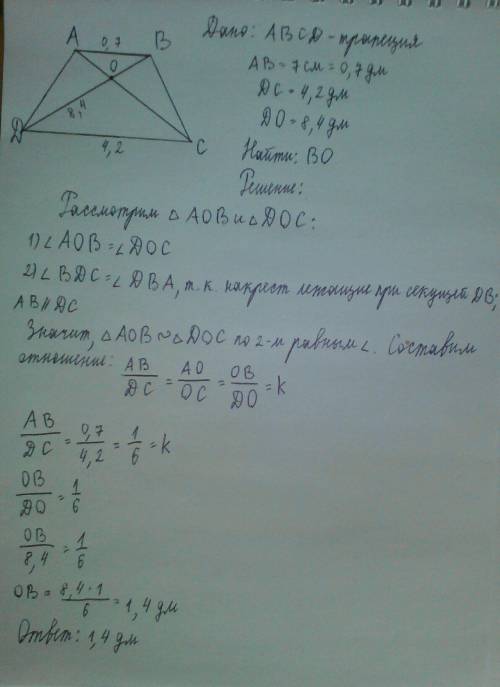 A 0,7 B
O
8,4
D 4,2 C
Дано: ABCD - трапеция
AB = 7 см = 0,7 дм
DC = 4,2 дм
DO = 8,4 дм
Найти: BO
Решение:
Рассмотрим △ AOB и △ DOC:
1) ∠ AOB = ∠ DOC
2) ∠ BDC = ∠ DBA, т.к. накрест лежащие при секущей DB;
AB ∥ DC
Значит, △ AOB ~ △ DOC по 2-м равным ∠. Составим
отношение: AB/DC = AO/OC = OB/DO = k
AB/DC = 0,7/4,2 = 1/6 = k
OB/DO = 1/6
OB/8,4 = 1/6
OB = 8,4·1/6 = 1,4 дм
Ответ: 1,4 дм